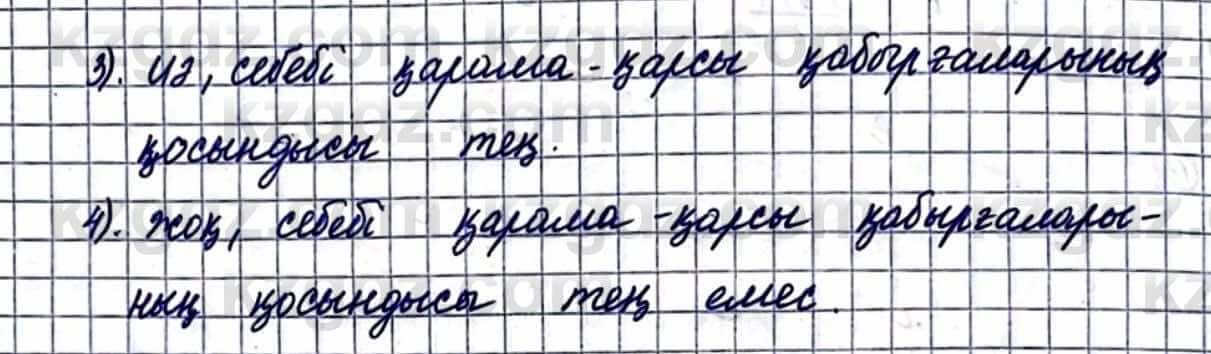 3). иә, себебі қарама-қарсы қабырғаларының
қосындысы тең.
4). жоқ, себебі қарама-қарсы қабырғалары-
ның қосындысы тең емес.